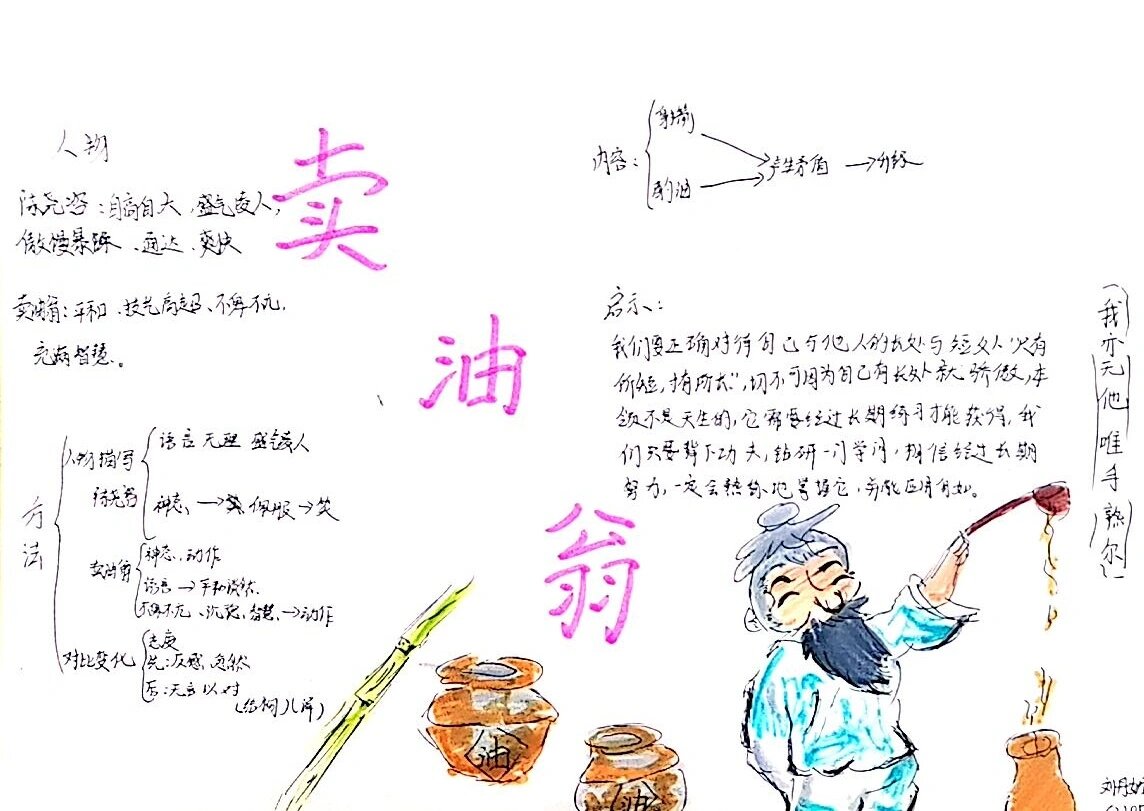 人物
陈尧咨：自高自大、盛气凌人，
傲慢暴躁、通达、爽快
卖油翁：平和、技艺高超、不卑不亢，
充满智慧。
卖
油
翁
方法
人物描写
陈尧咨
语言 无理 盛气凌人
神态 → 佩服 → 笑
卖油翁
神态、动作
语言 → 平和淡然
不卑不亢、沉稳、智慧 → 动作
对比变化
态度
先：反感、忿然
后：无言以对
内容：
射箭
酌油
产生矛盾
启示：
我们要正确对待自己与他人的长处与短处，
价短，才有所长”，切不可因为自己有长处就骄傲，本
领不是天生的，它需要经过长期练习才能获得，我
们只要肯下功夫，钻研一门学问，相信经过长期
努力，一定会熟练地掌握它，并能运用自如。
我亦无他唯手熟尔
油
油